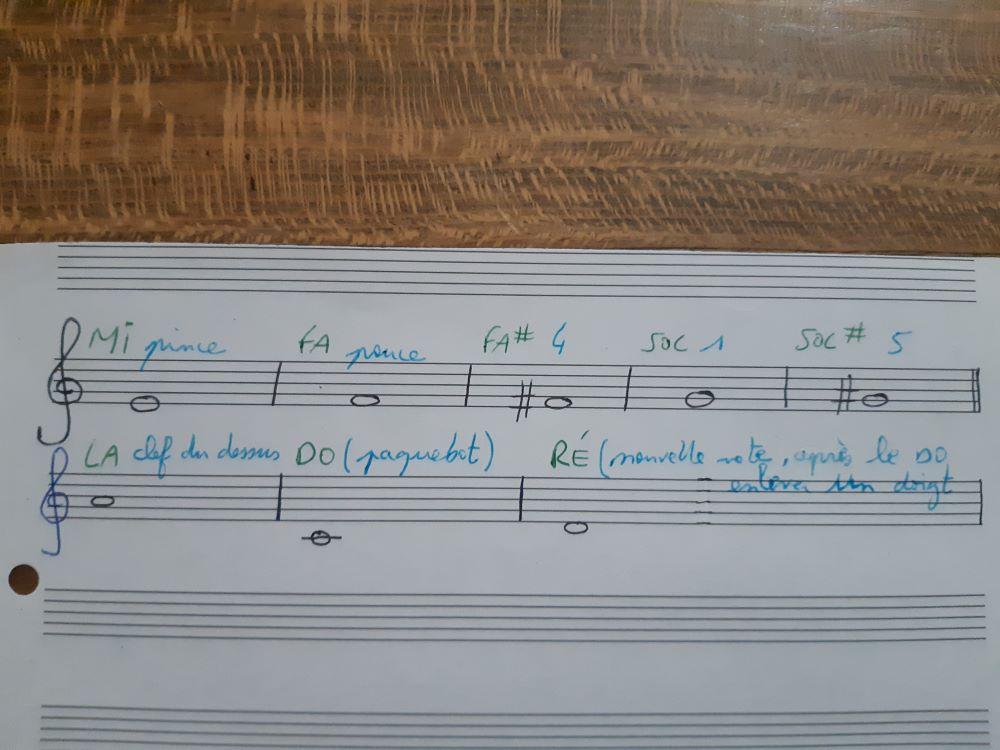 Mi pince FA pouce FA# 4 SOL 1 SOL# 5
LA clef du dessus DO (paquebot) RÉ (nouvelle note, après le DO
enlever un doigt